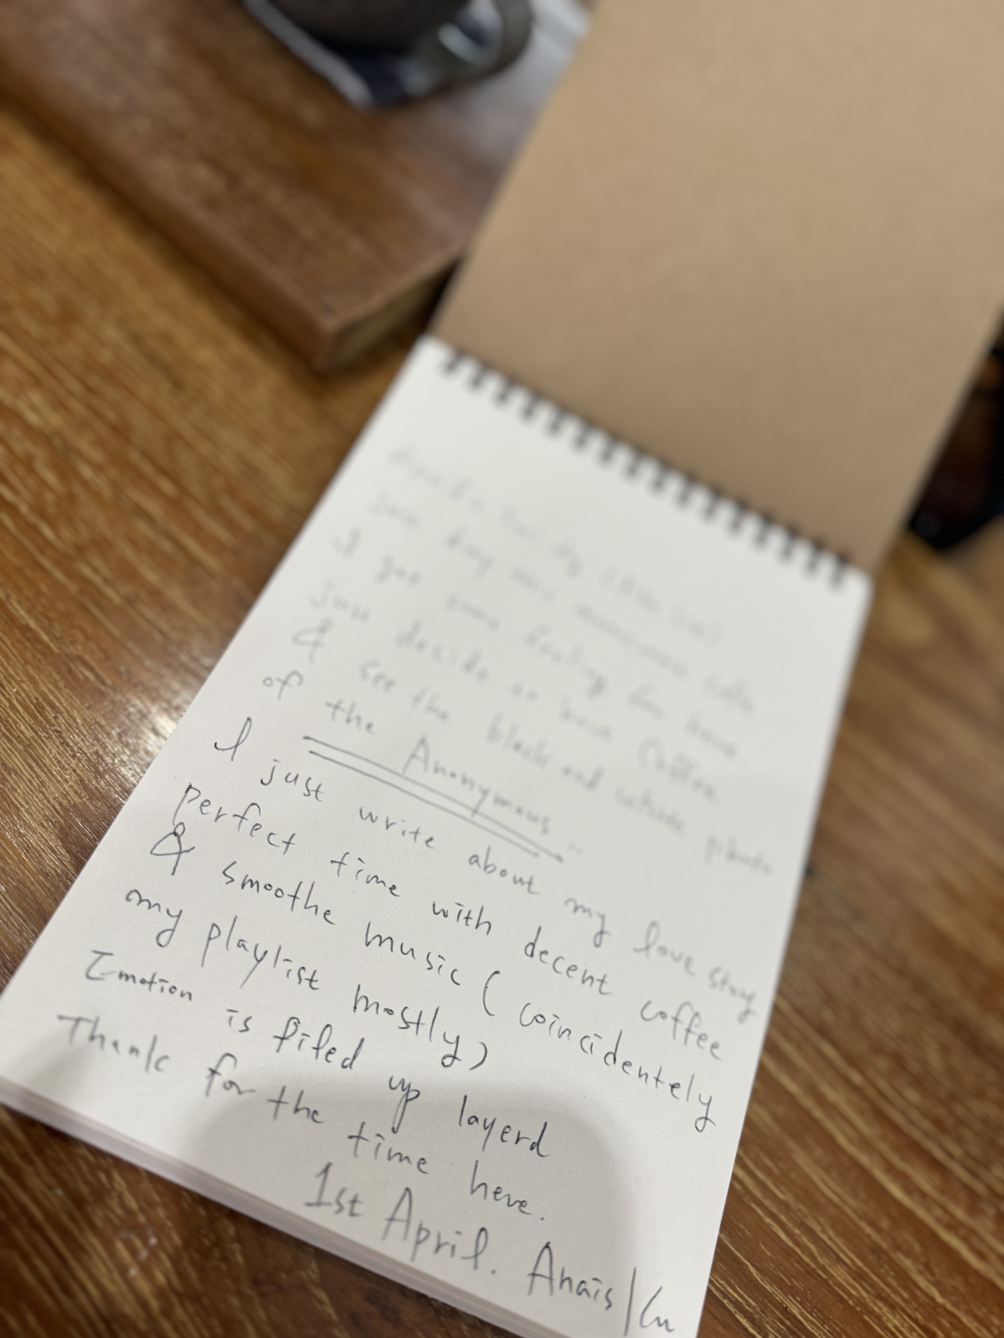 April's
just
I got some feeling for
just decide to have Coffee
& see the black and white photo
of the Anonymous.
I just write about my love story
perfect time with decent coffee
& smoothe music ( coincidentely
my playlist mostly)
Emotion is piled up layerd
Thank for the time here.
1st April. Anais/